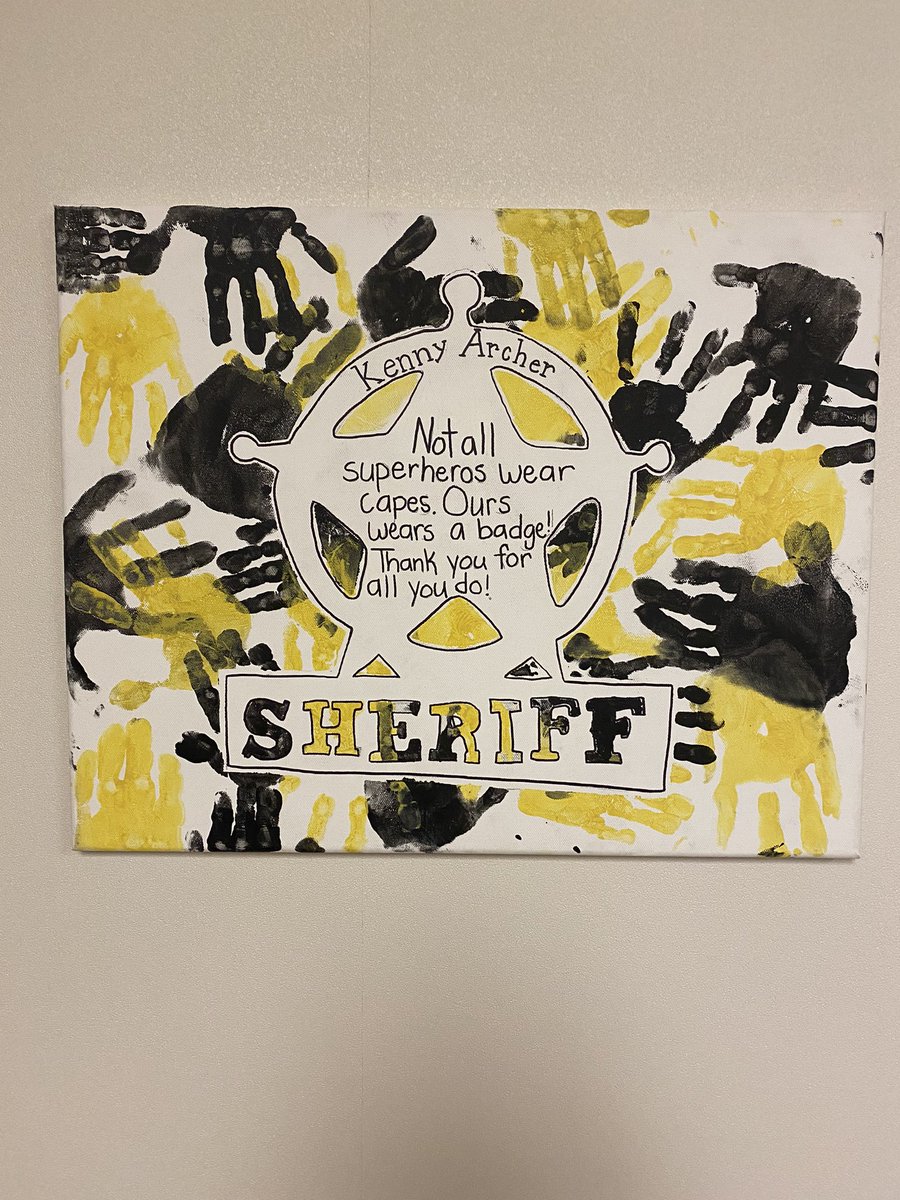 Kenny Archer
Not all
superheros wear
capes. Ours
wears a badge!!
Thank you for
all you do!
SHERIFF